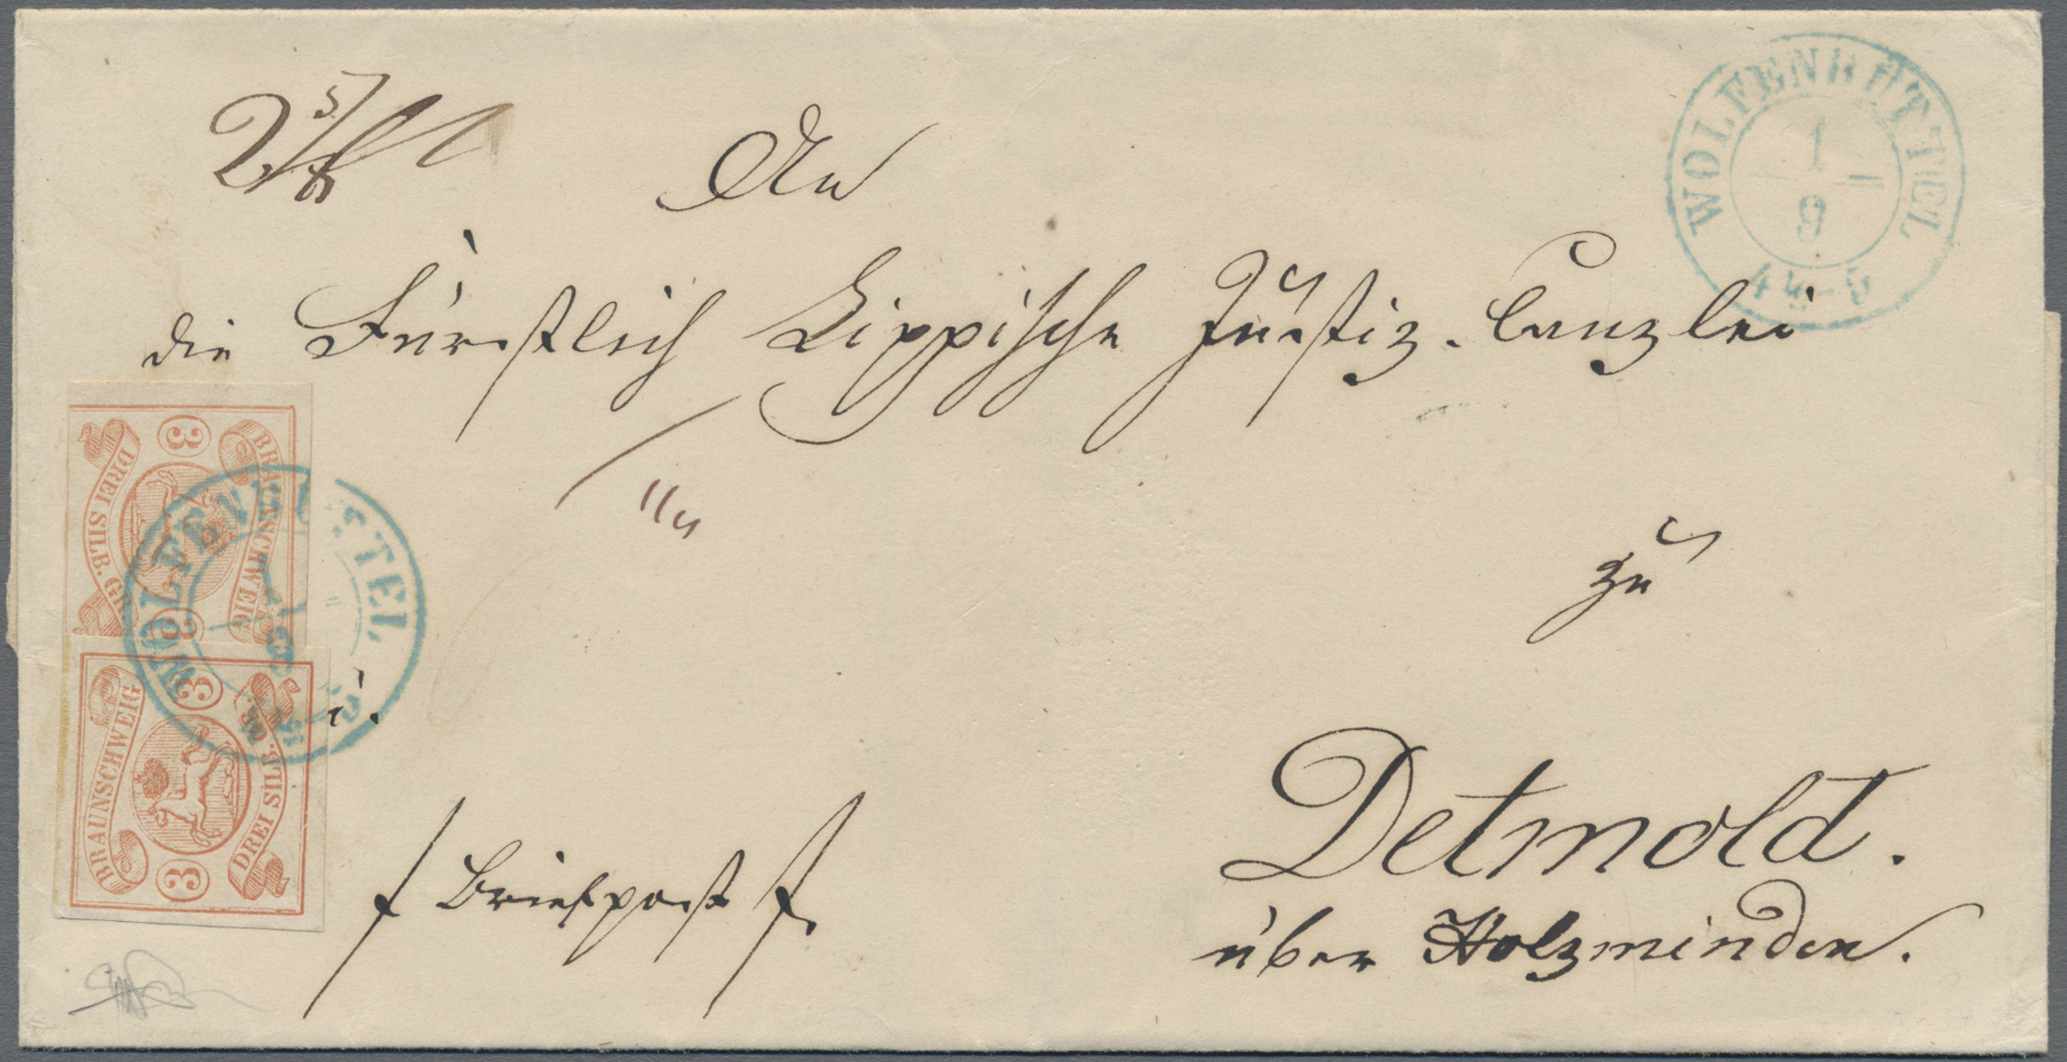 An
die Fürstlich Lippische Justiz-Canzlei
zu
Detmold.
über Holzminden.
f Briefpost f.
WOLFENBÜTTEL
1
9
4½-5
BRAUNSCHWEIG
DREI SILB. GR.
3
3
WOLFENBÜTTEL
BRAUNSCHWEIG
DREI SILB. GR.
3
3